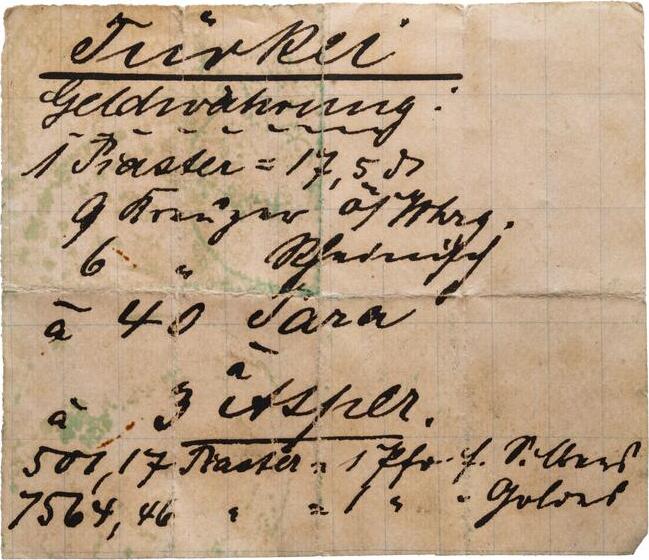 Türkei
Geldwährung:
1 Piaster = 17,5 ₰
9 Kreuzer öst Whrg.
6 " Rheinisch
à 40 Para
à
à 3 Asper.
501,17 Piaster = 1 Pfd f. Silbers
7564,46 " = 1 " " Goldes